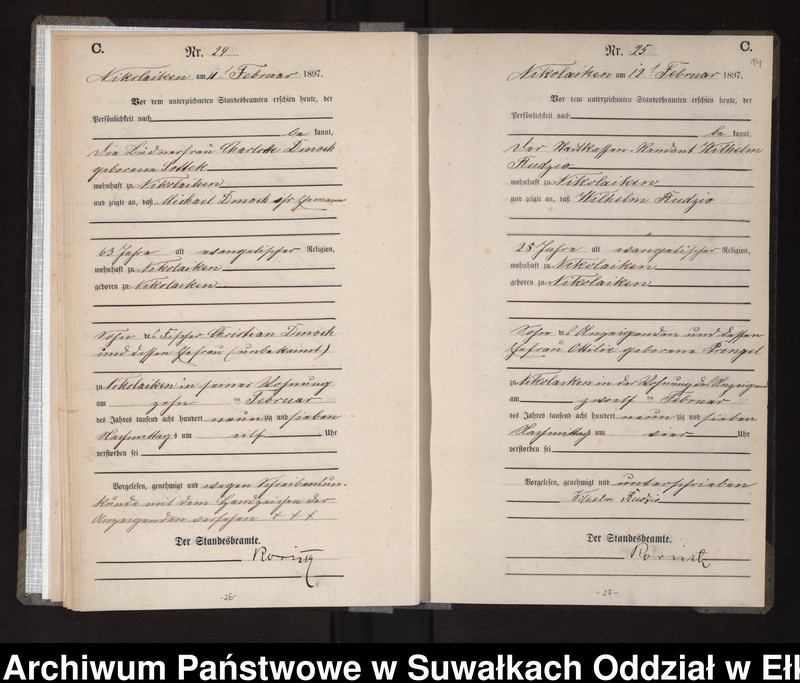 C.
Nr. 24
Nikolaiken am 11t Februar 1897.
Vor dem unterzeichneten Standesbeamten erschien heute, der
Persönlichkeit nach
be kannt,
die Büdnerfrau Charlotte Dmoch
geborene Sottek
wohnhaft zu Nikolaiken
und zeigte an, daß Michael Dmoch ihr Ehemann
63 Jahre alt evangelischer Religion,
wohnhaft zu Nikolaiken
geboren zu Nikolaiken
Sohn des Fischer Christian Dmoch
und dessen Ehefrau (unbekannt)
zu Nikolaiken in seiner Wohnung
am zehn ten Februar
des Jahres tausend acht hundert neun zig und sieben
Nachmittag s um eilf Uhr
verstorben sei
Vorgelesen, genehmigt und wegen Schreibensun-
kunde mit dem Handzeichen der
Anzeigenden versehen + + +
Der Standesbeamte.
-26-
C.
Nr. 25
14
Nikolaiken am 12t Februar 1897.
Vor dem unterzeichneten Standesbeamten erschien heute, der
Persönlichkeit nach
be kannt,
Der Stadtkassen-Rendant Wilhelm
Rudzio
wohnhaft zu Nikolaiken
und zeigte an, daß Wilhelm Rudzio
28 Jahre alt evangelischer Religion,
wohnhaft zu Nikolaiken
geboren zu Nikolaiken
Sohn des Anzeigenden und dessen
Ehefrau Ottilie geborene Prengel
zu Nikolaiken in der Wohnung des Anzeigend
am zwoelf ten Februar
des Jahres tausend acht hundert neun zig und sieben
Nachmittags um vier Uhr
verstorben sei
Vorgelesen, genehmigt und unterschrieben
Wilhelm Rudzio
Der Standesbeamte.
-27-
Archiwum Państwowe w Suwałkach Oddział w Ełk